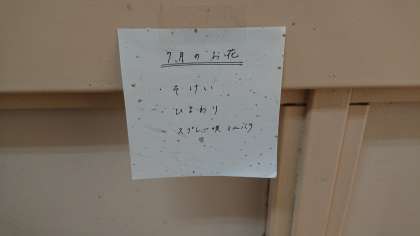 7月のお花
・そけい
・ひまわり
・スプレー咲